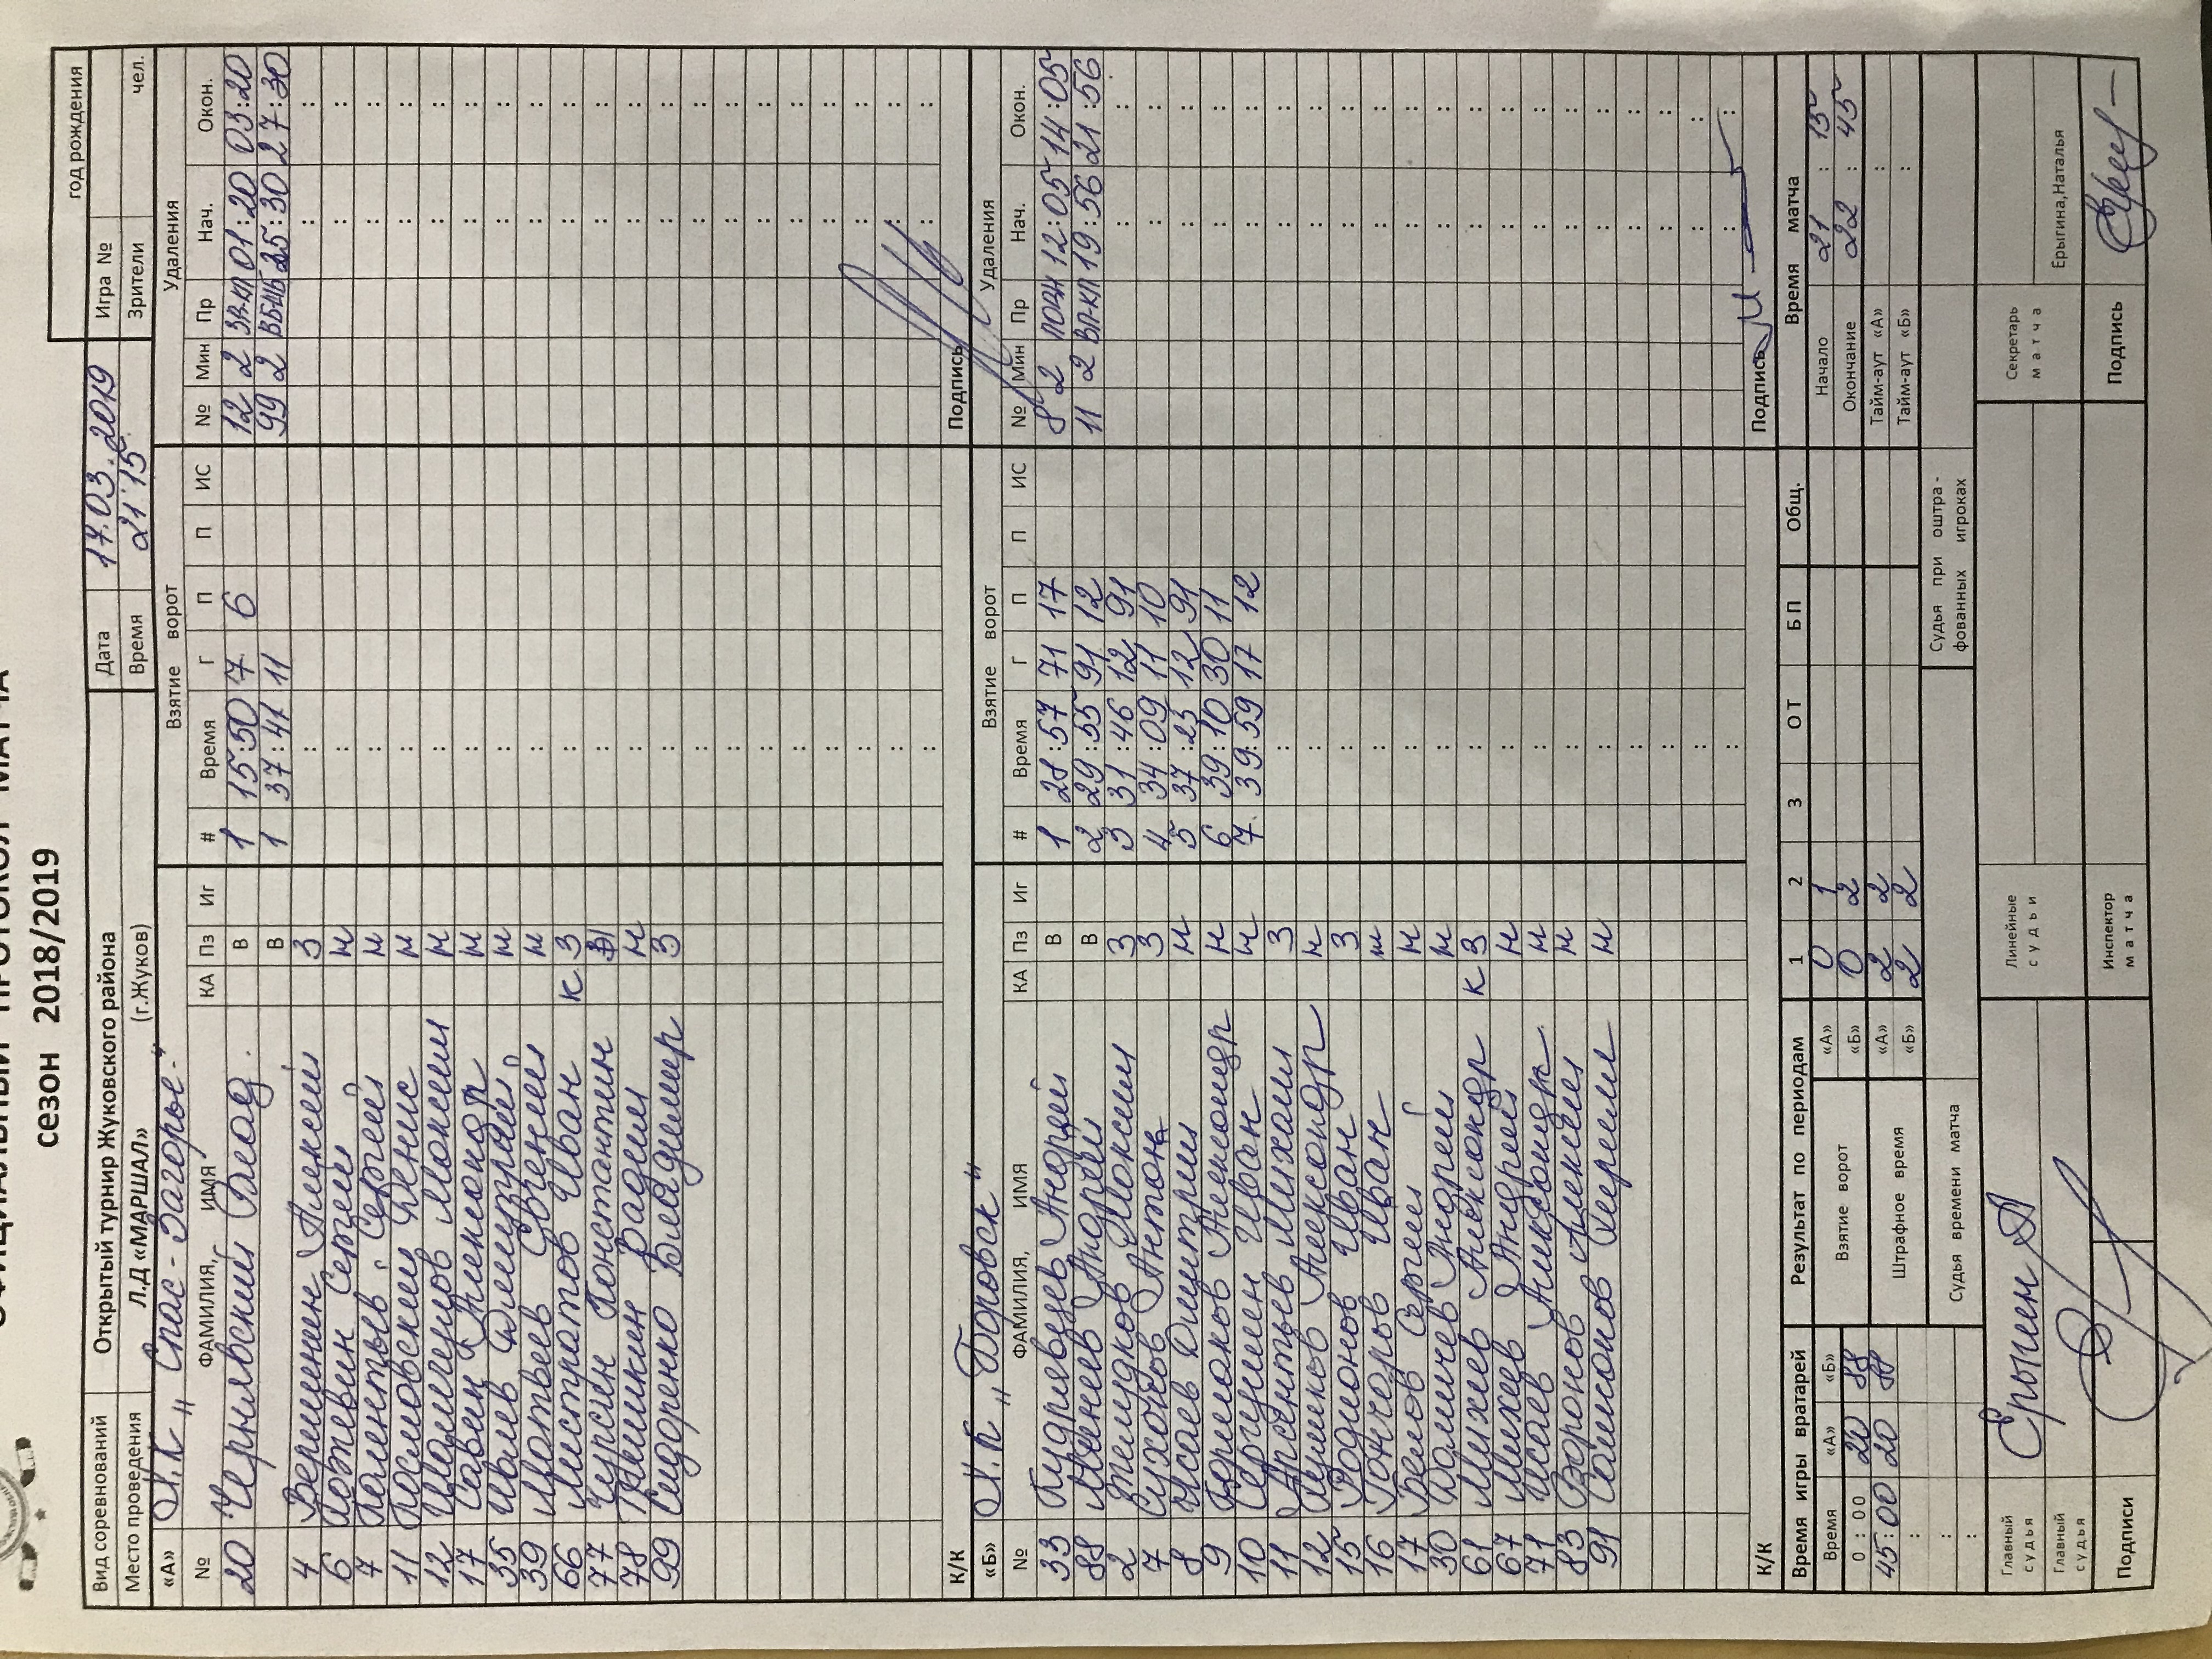 сезон 2018/2019
год рождения
Вид соревнований Открытый турнир Жуковского района Дата 17.03.2019 Игра №
Место проведения Л.Д «МАРШАЛ» (г.Жуков) Время 21 15 Зрители чел.
«А» Х.К „Спас-Загорье" Взятие ворот Удаления
№ ФАМИЛИЯ, ИМЯ КА Пз Иг # Время Г П П ИС № Мин Пр Нач. Окон.
20 Чернявский Влад. В 1 15:50 7 6 12 2 01:20 03:20
В 1 37:47 11 99 2 25:30 27:30
4 Вершинин Алексей З
6 Потевин Сергей Н
7 Сергей Н
11 Денис Н
12 Н
17 Савин Александр Н
35 Ивлев Дмитрий Н
39 Матвеев Евгений Н
66 Мистратов Иван К З
77 Чурсин Константин
78 Вадим Н
99 Сидоренко Владимир З
К/К Подпись
«Б» Х.К „Боровск" Взятие ворот Удаления
№ ФАМИЛИЯ, ИМЯ КА Пз Иг # Время Г П П ИС № Мин Пр Нач. Окон.
33 Кудрявцев Андрей В 1 28:57 71 17 8 2 12:05 14:05
88 Минеев Андрей В 2 29:55 91 12 11 2 19:56 21:56
2 Максим З 3 31:46 12 91
7 Антон З 4 34:09 11 10
8 Исаев Дмитрий Н 5 37:23 12 91
9 Ермаков Александр Н 6 39:10 30 11
10 Сергунин Иван Н 7 39:59 17 12
11 Арсентьев Михаил З
12 Александр Н
15 Родионов Иван З
16 Гончаров Иван Н
17 Белов Сергей Н
30 Андрей Н
61 Михеев Александр К З
67 Михеев Андрей Н
71 Исаев Александр Н
83 Воронов Алексей Н
91 Н
К/К Подпись
Время игры вратарей Результат по периодам 1 2 3 ОТ БП Общ. Время матча
Время «А» «Б» Взятие ворот «А» 0 1 Начало 21 : 15
0 : 00 20 88 «Б» 0 2 Окончание 22 : 45
45:00 20 88 Штрафное время «А» 2 2 Тайм-аут «А» :
«Б» 2 2 Тайм-аут «Б» :
Судья времени матча Судья при оштрафованных игроках
Главный судья Линейные судьи Секретарь матча
Главный судья Ерыгина,Наталья
Подписи Инспектор матча Подпись